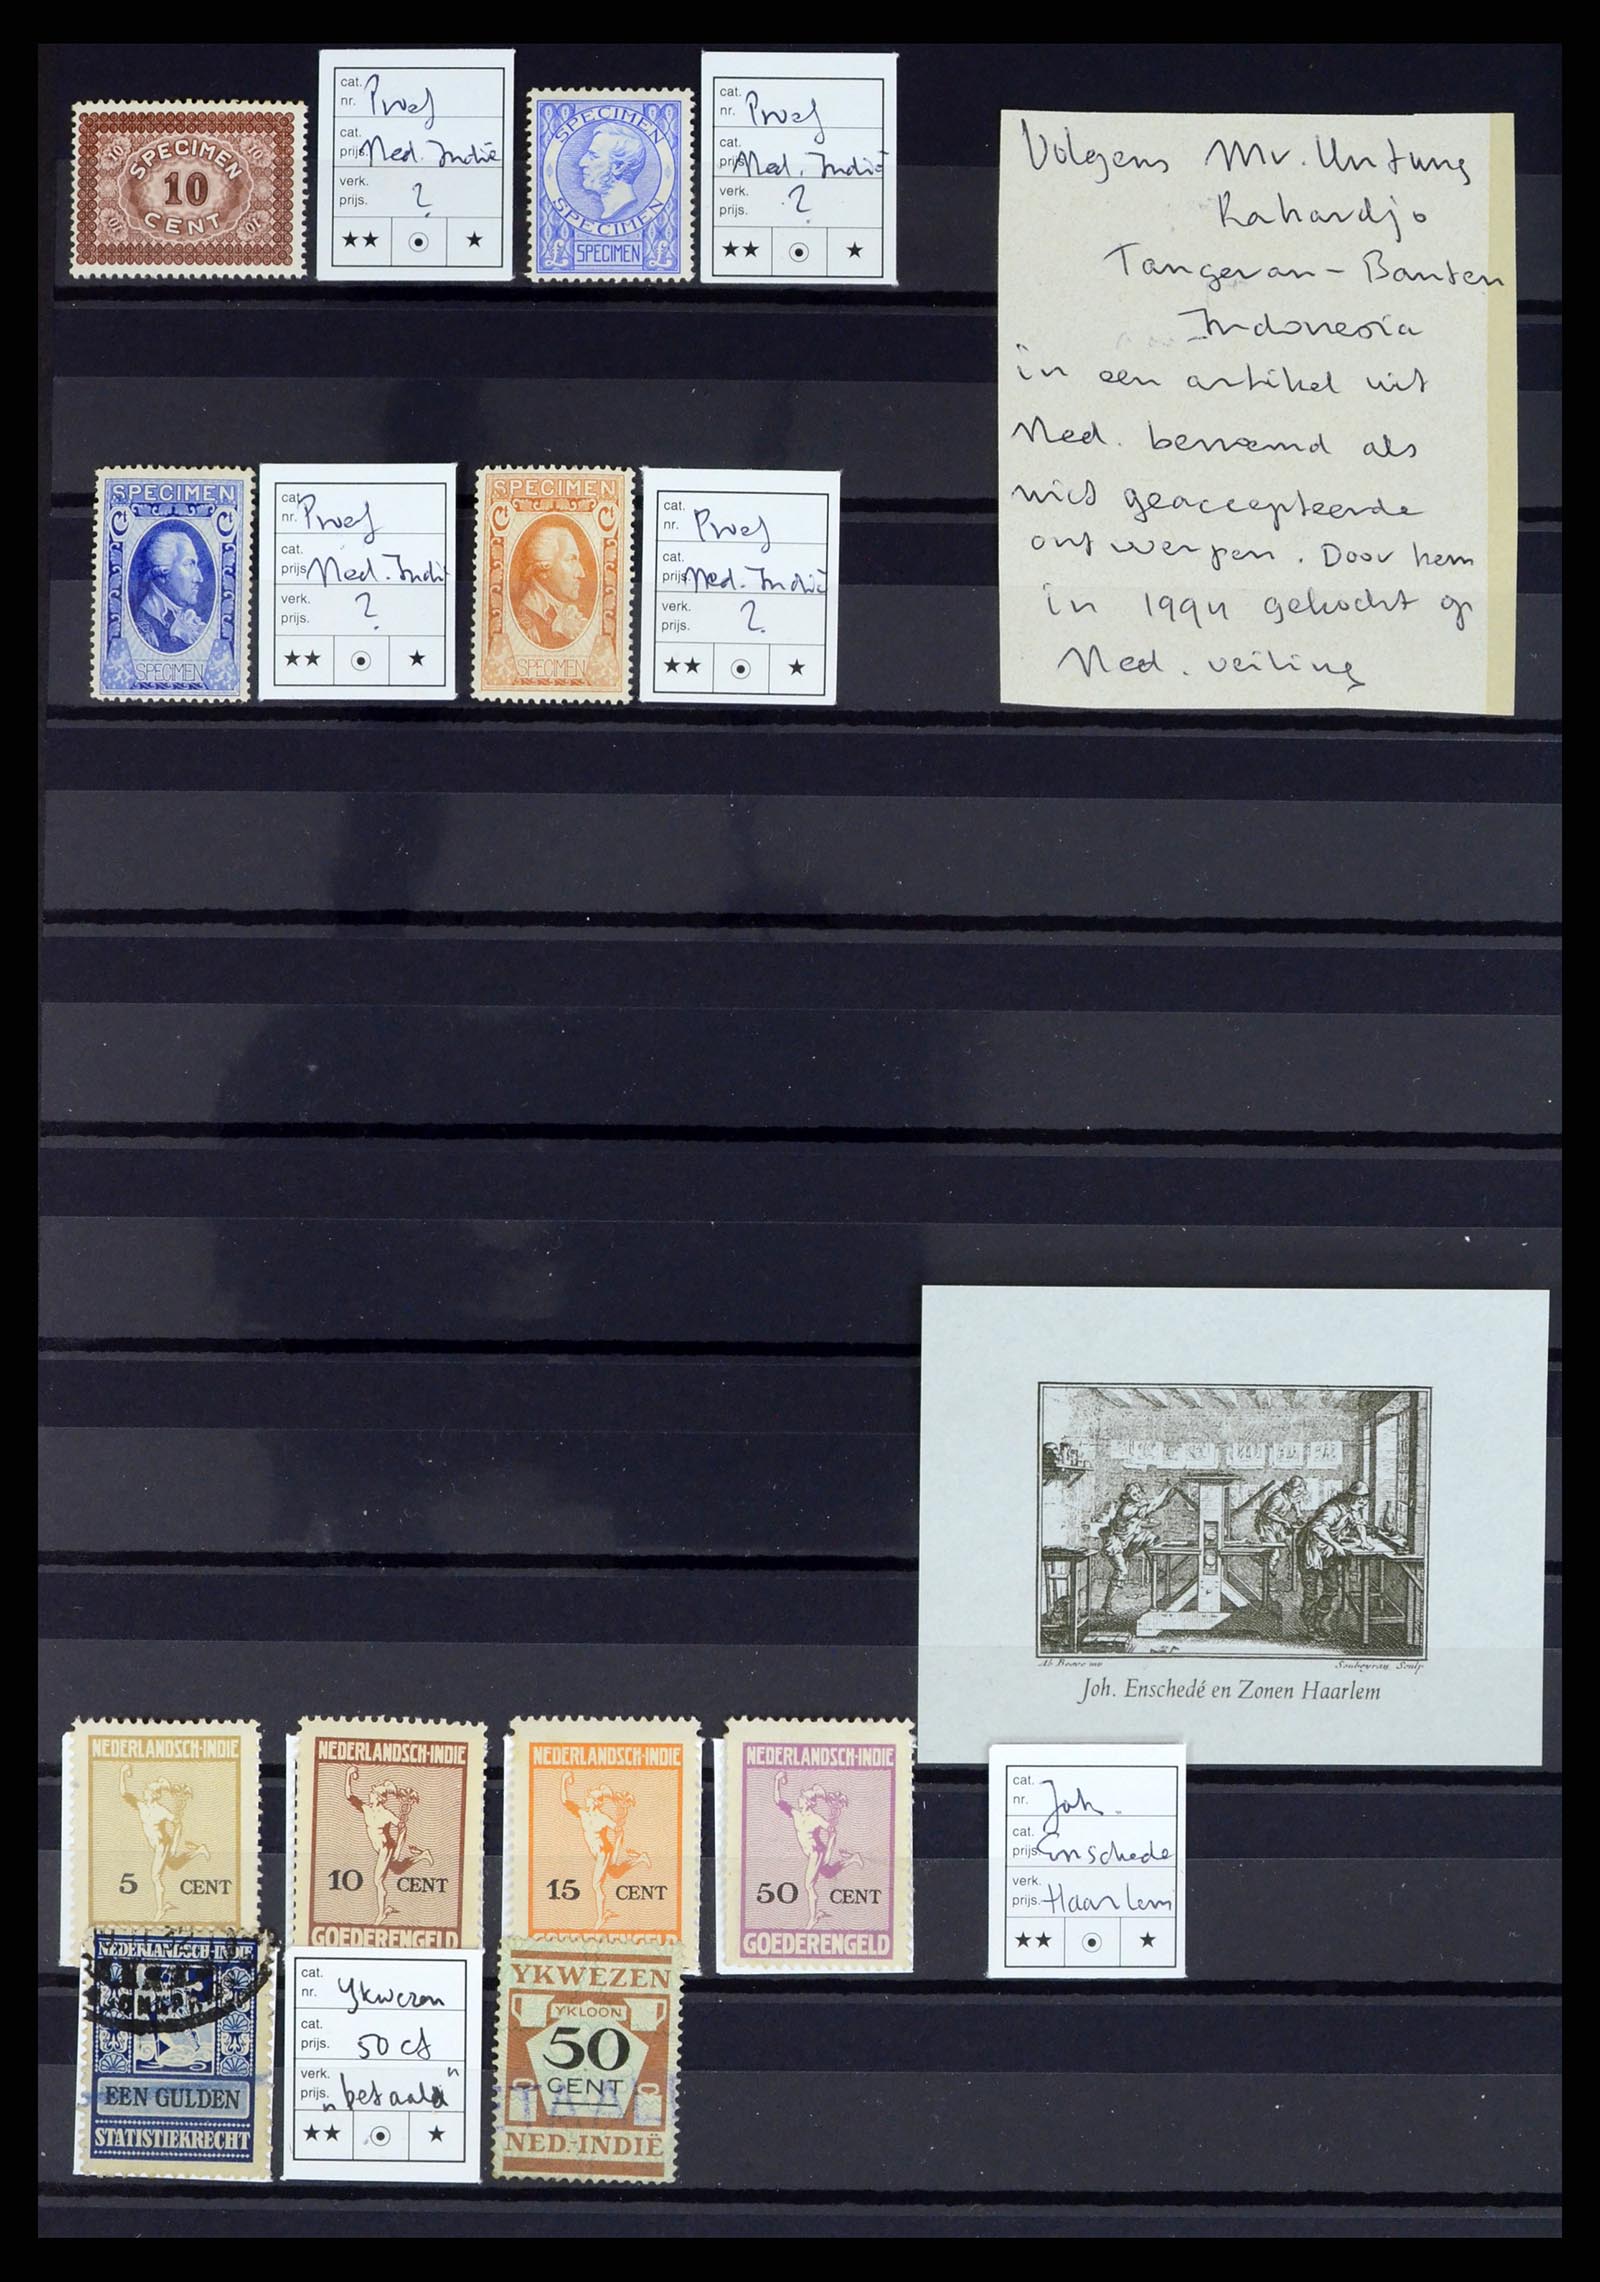 SPECIMEN
10
CENT
10
10
10
10
cat.
nr. Proef
cat.
prijs. Ned. Indië
verk.
prijs. ?
SPECIMEN
SPECIMEN
£ SPECIMEN £
cat.
nr. Proef
cat.
prijs. Ned. Indië
verk.
prijs. ?
Volgens Mr. Untung
Rahardjo
Tangeran - Banten
Indonesia
in een artikel uit
Ned. benoemd als
niet geaccepteerde
ontwerpen. Door hem
in 1994 gekocht op
Ned. veiling
SPECIMEN
Ct Ct
SPECIMEN
cat.
nr. Proef
cat.
prijs. Ned. Indië
verk.
prijs. ?
SPECIMEN
Ct Ct
SPECIMEN
cat.
nr. Proef
cat.
prijs. Ned. Indië
verk.
prijs. ?
Joh. Enschedé en Zonen Haarlem
NEDERLANDSCH-INDIE
5 CENT
NEDERLANDSCH-INDIE
10 CENT
GOEDERENGELD
NEDERLANDSCH-INDIE
15 CENT
NEDERLANDSCH-INDIE
50 CENT
GOEDERENGELD
cat.
nr. Joh.
cat.
prijs. Enschede
verk.
prijs. Haarlem
NEDERLANDSCH-INDIE
EEN GULDEN
STATISTIEKRECHT
cat.
nr. Ykwezen
cat.
prijs. 50 ct
verk.
prijs. "betaald"
YKWEZEN
YKLOON
50
CENT
TAAL
NED.-INDIË